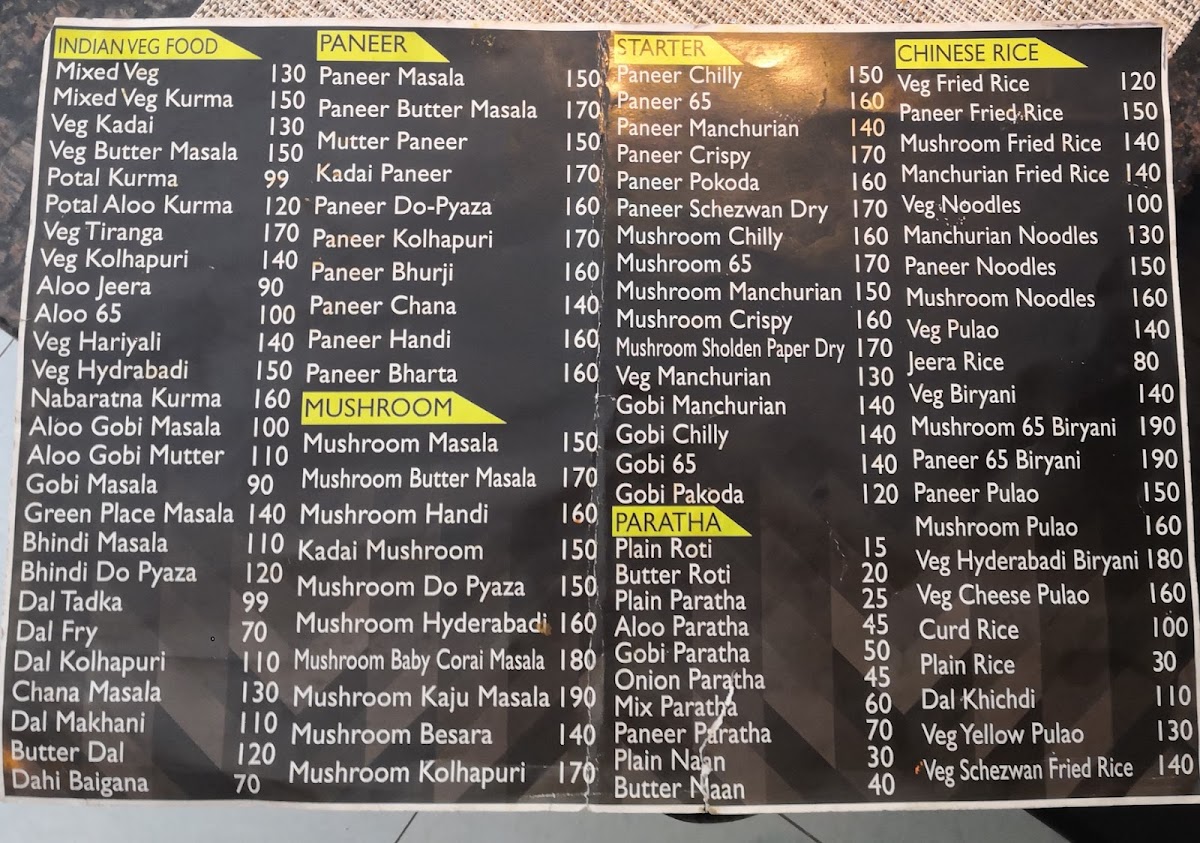 INDIAN VEG FOOD
Mixed Veg 130
Mixed Veg Kurma 150
Veg Kadai 130
Veg Butter Masala 150
Potal Kurma 99
Potal Aloo Kurma 120
Veg Tiranga 170
Veg Kolhapuri 140
Aloo Jeera 90
Aloo 65 100
Veg Hariyali 140
Veg Hydrabadi 150
Nabaratna Kurma 160
Aloo Gobi Masala 100
Aloo Gobi Mutter 110
Gobi Masala 90
Green Place Masala 140
Bhindi Masala 110
Bhindi Do Pyaza 120
Dal Tadka 99
Dal Fry 70
Dal Kolhapuri 110
Chana Masala 130
Dal Makhani 110
Butter Dal 120
Dahi Baigana 70
PANEER
Paneer Masala 150
Paneer Butter Masala 170
Mutter Paneer 150
Kadai Paneer 170
Paneer Do-Pyaza 160
Paneer Kolhapuri 170
Paneer Bhurji 160
Paneer Chana 140
Paneer Handi 160
Paneer Bharta 160
MUSHROOM
Mushroom Masala 150
Mushroom Butter Masala 170
Mushroom Handi 160
Kadai Mushroom 150
Mushroom Do Pyaza 150
Mushroom Hyderabadi 160
Mushroom Baby Corai Masala 180
Mushroom Kaju Masala 190
Mushroom Besara 140
Mushroom Kolhapuri 170
STARTER
Paneer Chilly 150
Paneer 65 160
Paneer Manchurian 140
Paneer Crispy 170
Paneer Pokoda 160
Paneer Schezwan Dry 170
Mushroom Chilly 160
Mushroom 65 170
Mushroom Manchurian 150
Mushroom Crispy 160
Mushroom Sholden Paper Dry 170
Veg Manchurian 130
Gobi Manchurian 140
Gobi Chilly 140
Gobi 65 140
Gobi Pakoda 120
PARATHA
Plain Roti 15
Butter Roti 20
Plain Paratha 25
Aloo Paratha 45
Gobi Paratha 50
Onion Paratha 45
Mix Paratha 60
Paneer Paratha 70
Plain Naan 30
Butter Naan 40
CHINESE RICE
Veg Fried Rice 120
Paneer Fried Rice 150
Mushroom Fried Rice 140
Manchurian Fried Rice 140
Veg Noodles 100
Manchurian Noodles 130
Paneer Noodles 150
Mushroom Noodles 160
Veg Pulao 140
Jeera Rice 80
Veg Biryani 140
Mushroom 65 Biryani 190
Paneer 65 Biryani 190
Paneer Pulao 150
Mushroom Pulao 160
Veg Hyderabadi Biryani 180
Veg Cheese Pulao 160
Curd Rice 100
Plain Rice 30
Dal Khichdi 110
Veg Yellow Pulao 130
Veg Schezwan Fried Rice 140